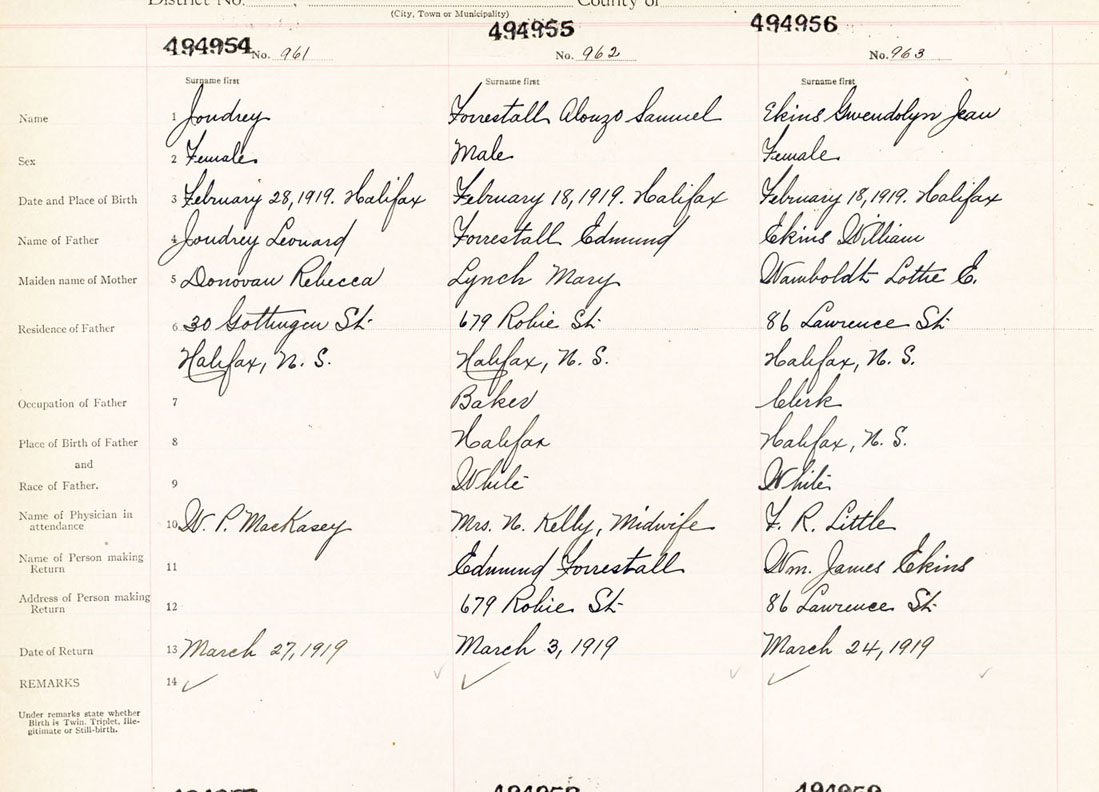 District No. County of
(City, Town or Municipality)
494954 494955 494956
No. 961 No. 962 No. 963
Surname first Surname first Surname first
Name 1 Joudrey Forrestall Alonzo Samuel Ekins Gwendolyn Jean
Sex 2 Female Male Female
Date and Place of Birth 3 February 28, 1919. Halifax February 18, 1919. Halifax February 18, 1919. Halifax
Name of Father 4 Joudrey Leonard Forrestall Edmund Ekins William
Maiden name of Mother 5 Donovan Rebecca Lynch Mary Wamboldt Lottie E.
Residence of Father 6 30 Gottingen St. 679 Robie St. 86 Lawrence St.
Halifax, N. S. Halifax, N. S. Halifax, N. S.
Occupation of Father 7 Baker Clerk
Place of Birth of Father 8 Halifax Halifax, N. S.
and
Race of Father. 9 White White
Name of Physician in
attendance 10 W. P. MacKasey Mrs. N. Kelly, Midwife F. R. Little
Name of Person making
Return 11 Edmund Forrestall Wm. James Ekins
Address of Person making
Return 12 679 Robie St. 86 Lawrence St.
Date of Return 13 March 27, 1919 March 3, 1919 March 24, 1919
REMARKS 14
Under remarks state whether
Birth is Twin, Triplet, Ille-
gitimate or Still-birth.